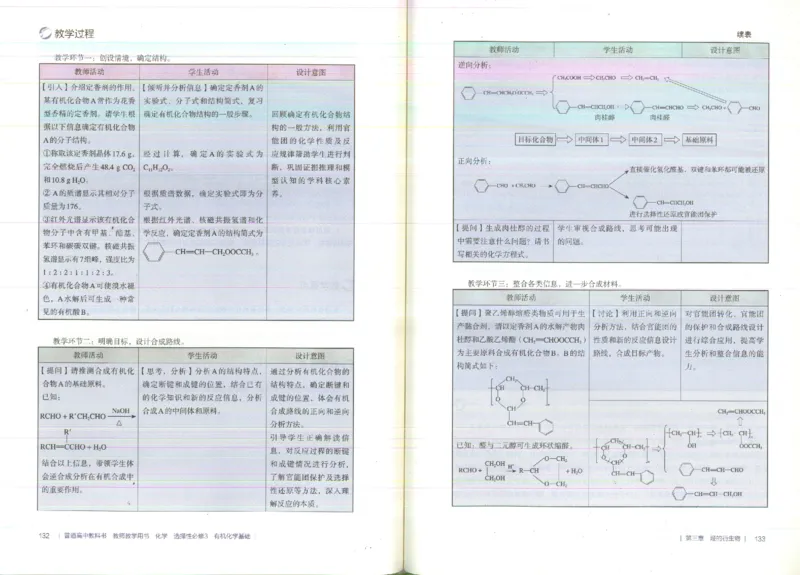 教学过程
教学环节一：创设情境，确定结构。
教师活动
学生活动
设计意图
【引入】介绍定香剂的作用。
某有机化合物A常作为花香
型香精的定香剂。请学生根
据以下信息确定有机化合物
A的分子结构。
①称取该定香剂晶体17.6 g，
完全燃烧后产生48.4 g CO₂
和10.8 g H₂O。
② A的质谱显示其相对分子
质量为176。
③红外光谱显示该有机化合
物分子中含有甲基、酯基、
苯环和碳碳双键。核磁共振
氢谱显示有7组峰，强度比为
1∶2∶2∶1∶1∶2∶3。
④有机化合物A可使溴水褪
色，A水解后可生成一种常
见的有机酸B。
【倾听并分析信息】确定定香剂A的
实验式、分子式和结构简式，复习
确定有机化合物结构的一般步骤。
经过计算，确定A的实验式为
C₁₁H₁₂O₂。
根据质谱数据，确定实验式即为分
子式。
根据红外光谱、核磁共振氢谱和化
学反应，确定定香剂A的结构简式为
CH=CH—CH₂OOCCH₃。
回顾确定有机化合物结
构的一般方法，利用官
能团的化学性质及反
应规律帮助学生进行判
断，巩固证据推理和模
型认知的学科核心素
养。
教学环节二：明确目标，设计合成路线。
教师活动
学生活动
设计意图
【提问】请推测合成有机化
合物A的基础原料。
已知：
RCHO＋R′CH₂CHO NaOH △
R′
RCH=CCHO＋H₂O
结合以上信息，带领学生体
会逆合成分析在有机合成中
的重要作用。
【思考，分析】分析A的结构特点，
确定断键和成键的位置，结合已有
的化学知识和新的反应信息，分析
合成A的中间体和原料。
通过分析有机化合物的
结构特点，确定断键和
成键的位置，体会有机
合成路线的正向和逆向
分析方法。
引导学生正确解读信
息，对反应过程的断键
和成键情况进行分析，
了解官能团保护及选择
性还原等方法，深入理
解反应的本质。
132 | 普通高中教科书 教师教学用书 化学 选择性必修3 有机化学基础
续表
教师活动
学生活动
设计意图
逆向分析：
CH₃COOH CH₃CHO CH₂=CH₂
CH=CHCH₂OOCCH₃
CH=CHCH₂OH CH=CHCHO CH₃CHO＋ CHO
肉桂醇 肉桂醛
目标化合物 中间体1 中间体2 基础原料
正向分析：
直接催化氢化醛基、双键和苯环都可能被还原
CHO ＋CH₃CHO CH=CHCHO
CH=CHCH₂OH
进行选择性还原或官能团保护
【提问】生成肉桂醇的过程
中需要注意什么问题？请书
写相关的化学方程式。
学生审视合成路线，思考可能出现
的问题。
教学环节三：整合各类信息，进一步合成材料。
教师活动
学生活动
设计意图
【提问】聚乙烯醇缩醛类物质可用于生
产黏合剂。请以定香剂A的水解产物肉
桂醇和乙酸乙烯酯（CH₂=CHOOCCH₃）
为主要原料合成有机化合物B。B的结
构简式如下：
CH₂
CH CH—CH₂
O O
CH
CH=CH
已知：醛与二元醇可生成环状缩醛。
RCHO＋ CH₂OH CH₂OH H⁺ R—CH O—CH₂ O—CH₂ ＋H₂O
【讨论】利用正向和逆向
分析方法，结合官能团的
性质和新的反应信息设计
路线，合成目标产物。
CH₂=CHOOCCH₃
CH₂ CH CH—CH₂ O O CH CH=CH
CH₂—CH OH
CH₂ CH OOCCH₃
CH=CH—CHO
CH=CH—CH₂OH
对官能团转化、官能团
的保护和合成路线设计
进行综合应用，提高学
生分析和整合信息的能
力。
| 第三章 烃的衍生物 | 133